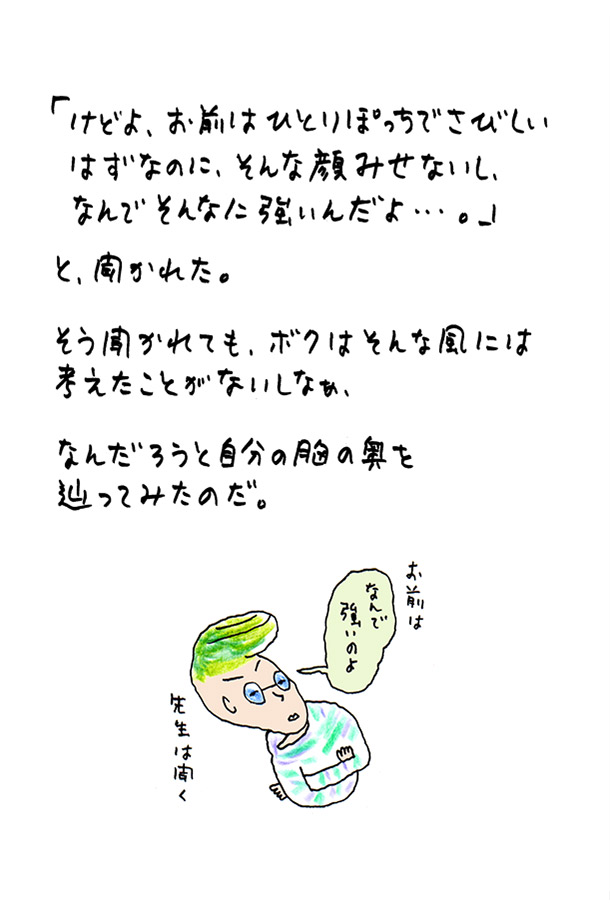 「けどよ、お前はひとりぽっちでさびしい
はずなのに、そんな顔みせないし、
なんでそんなに強いんだよ…。」
と、聞かれた。
そう聞かれても、ボクはそんな風には
考えたことがないしなぁ、
なんだろうと自分の胸の奥を
辿ってみたのだ。
お前は
なんで
強いのよ
先生は聞く